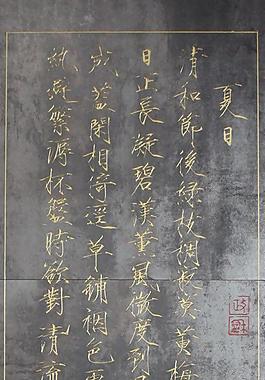 夏日
清和節後綠枝稠寂寞黃梅
日正長凝碧漢薰風微度到
成蓋閑相倚逕草鋪裀色更
紈避繁溽杯盤時欲對清流
政和